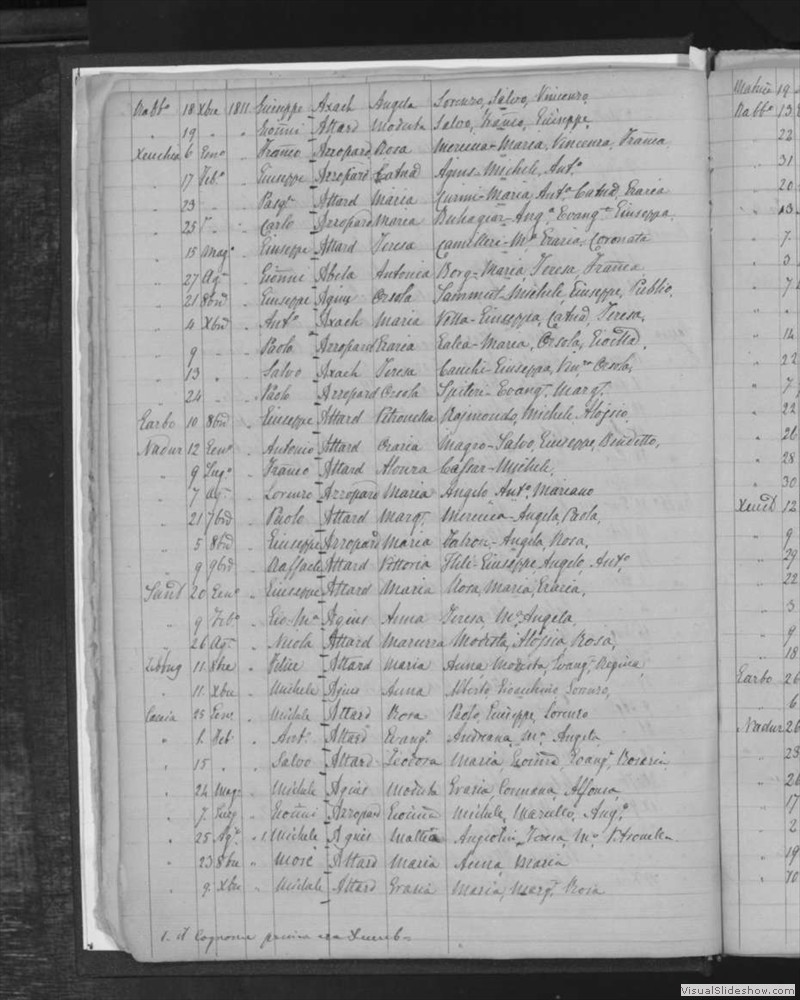 Rabbo 18 Xbre 1811 Giuseppe Axach Angela Lorenzo, Salvo, Vincenzo
" 19 " " Giovni Attard Modesta Salvo, Franco, Giuseppe
Xeuchia 6 Geno " Franco Arropard Rosa Marsa, Vincenza, Franca
" 17 Febo " Giuseppe Arropard Catna Agius Michele, Anto
" 23 " " Pasqe Attard Maria Maria, Anto Catna, Grazia
" 25 " " Carlo Arropard Maria Buhagiar-Anga Evangta Giuseppa
" 15 Mago " Giuseppe Attard Teresa Camilleri-Ma Grazia, Coronata
" 27 Ago " Giovni Abela Antonia Borg-Maria, Teresa, Franca
" 21 8bre " Giuseppe Agius Orsola Sammut-Michele, Giuseppe, Publio
" 4 Xbre " Anto Axach Maria Vella-Giuseppa, Catna, Teresa,
" 9 " " Paolo Arropard Grazia Galea-Maria, Orsola,
" 13 " " Salvo Axach Teresa Cauchi-Giuseppa, Orsola,
" 24 " " Paolo Arropard Orsola Spiteri-Evangta, Margta
Garbo 10 8bre " Giuseppe Attard Petronella Rajmondo, Michele, Alojsio
Nadur 12 Geno " Antonio Attard Grazia Magro-Salvo, Giuseppe, Benditto,
" 9 Lugo " Franco Attard Cassar-Michele,
" 7 Ago " Lorenzo Arropard Maria Angelo Anto, Mariano
" 21 7bre " Paolo Attard Margta Angela, Paola,
" 5 8bre " Giuseppe Arropard Maria Angela, Rosa,
" 9 9bre " Raffaele Attard Vittoria Giuseppe, Angelo, Anto
Sanat 20 Geno " Giuseppe Attard Maria Rosa, Maria, Grazia,
" 9 Febo " Gio Ma Agius Anna Teresa, Ma Angela
" 26 Ago " Nicola Attard Modesta, Alojsia, Rosa,
Zebbug 11 8bre " Felice Attard Maria Anna, Modesta, Evanga, Regina,
" 11 Xbre " Michele Agius Anna Alberto, Gioachino, Lorenzo,
Caccia 25 Geno " Michele Attard Rosa Paolo, Giuseppe, Lorenzo
" 1 Feb " Anto Attard Evanga Andreana, Ma Angela
" 15 " " Salvo Attard Teodora Maria, Giovna, Evanga, Rosaria
" 24 Mago " Michele Agius Modesta Grazia Alfonsa,
" 7 Lug " Giovni Arropard Giovna Michele, Marcello, Ango
" 25 Ago " 1 Michele Agius Mattea Angiolin, Teresa, Ma
" 23 8bre " Mosè Attard Maria Anna, Maria
" 9 Xbre " Michele Attard Grazia Maria, Margta, Rosa
1. il Cognome
Matrice 19
Rabbo 13
22
31
20
13
7
3
7
14
22
7
22
26
28
30
Xeuch 12
9
29
22
3
9
18
Garbo 26
6
Nadur 26
23
26
17
2
19
10
VisualSlideshow.com